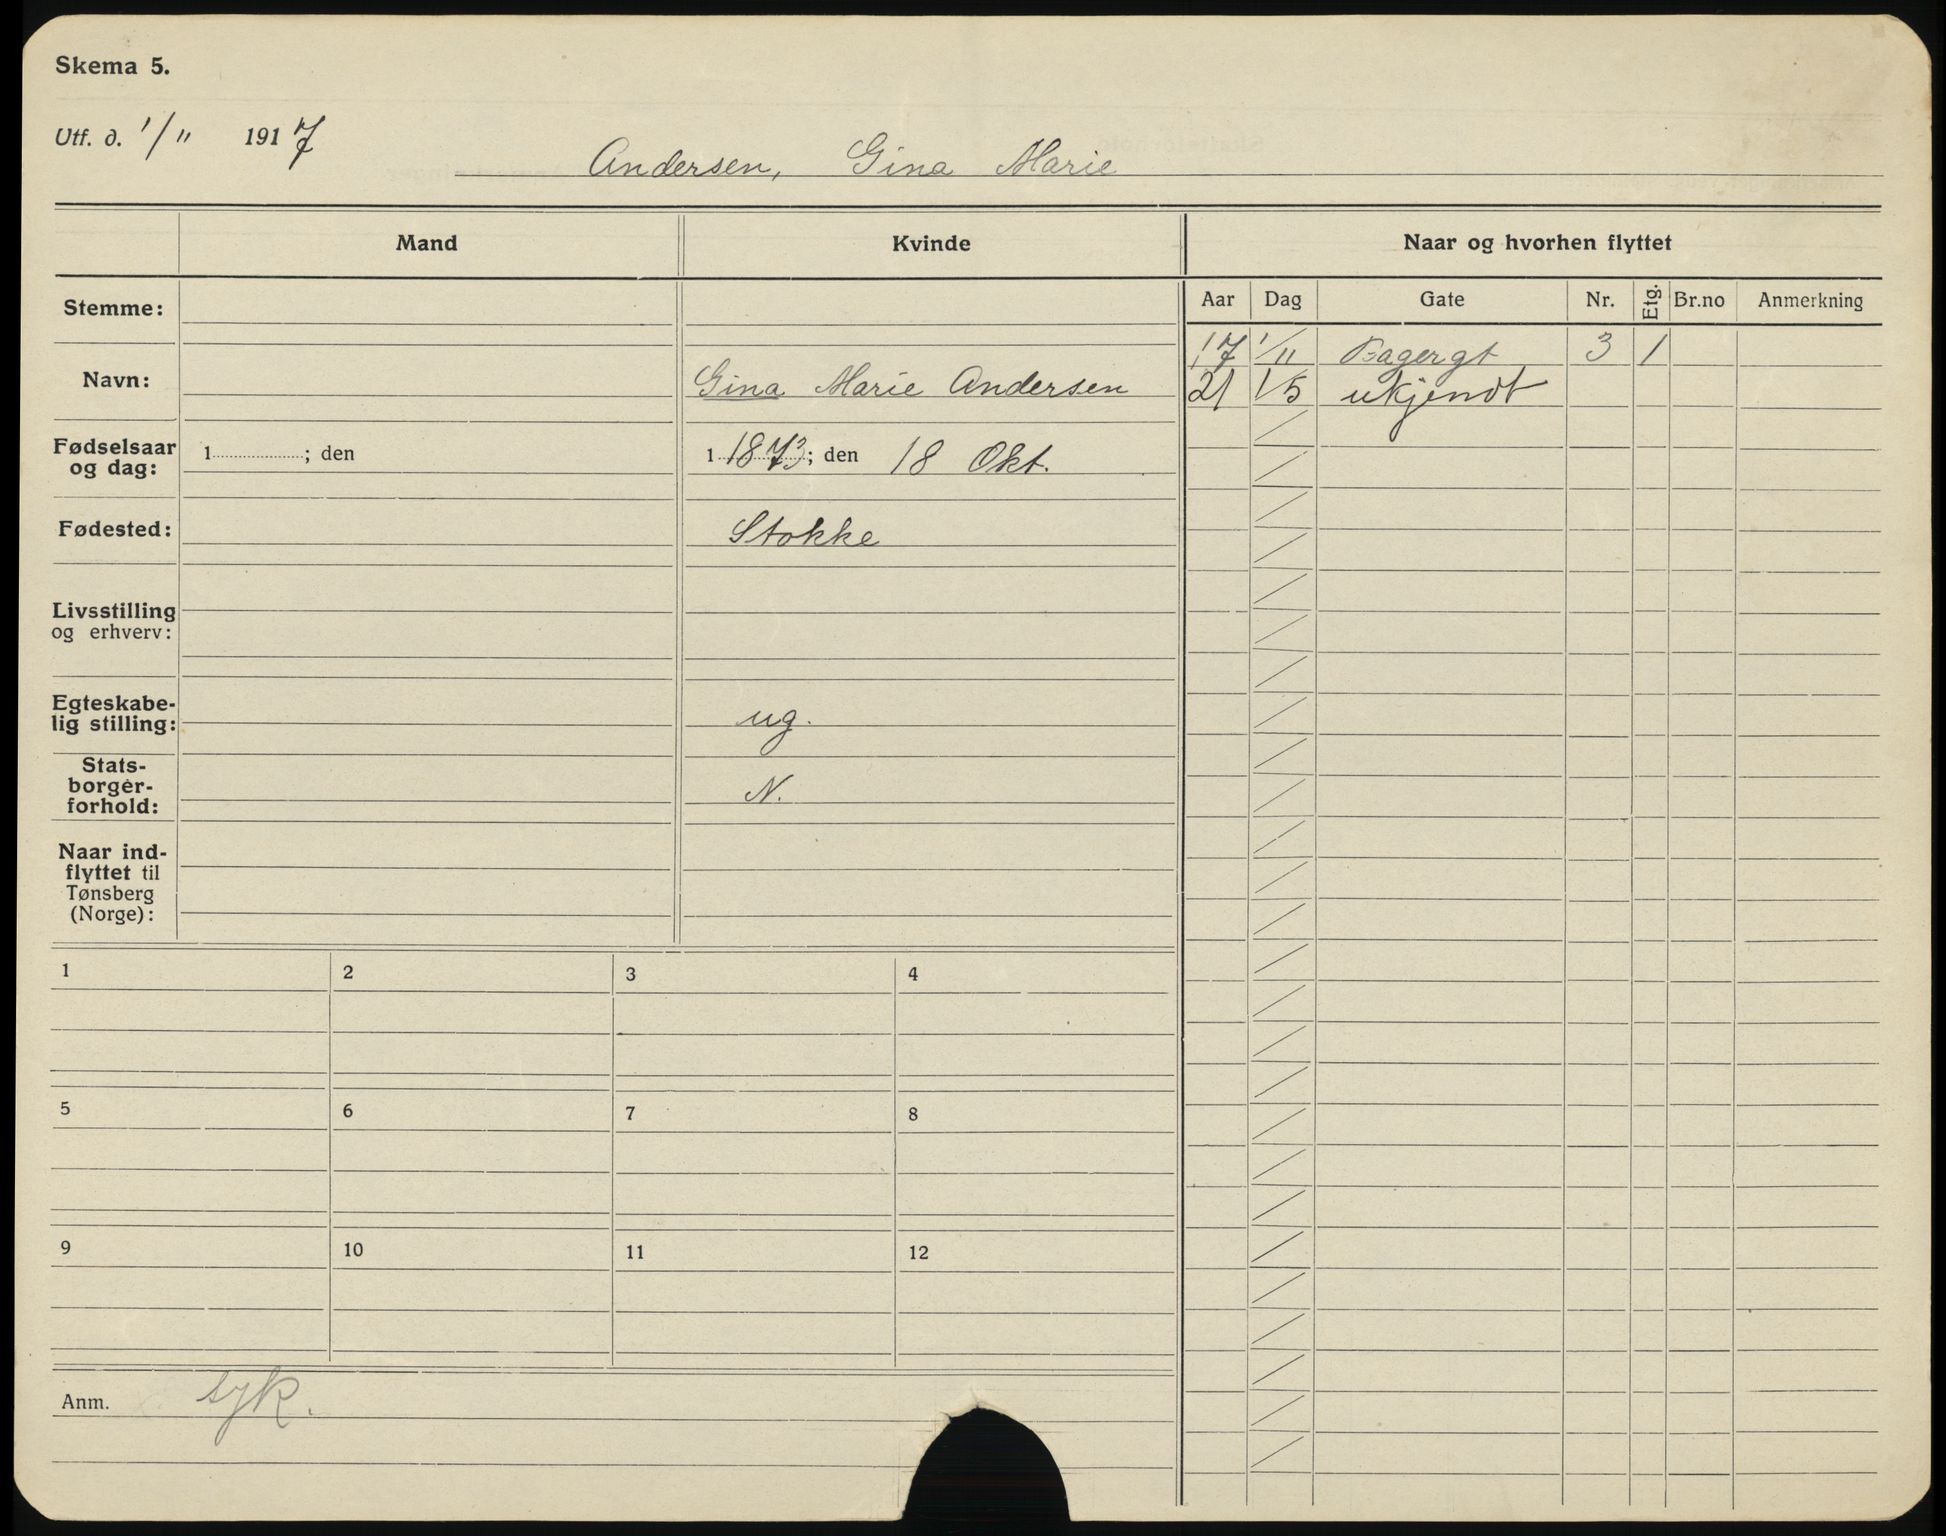 Skema 5.
Utf. d. 1/11 1917
Andersen, Gina Marie
Mand Kvinde Naar og hvorhen flyttet
Stemme:
Aar Dag Gate Nr. Etg. Br.no Anmerkning
17 1/11 Bagergt 3 1
Navn: Gina Marie Andersen
21 1/5 ukjendt
Fødselsaar og dag: 1 ; den 1 1873; den 18 Okt.
Fødested: Stokke
Livsstilling og erhverv:
Egteskabe-
lig stilling: ug.
Stats-
borger-
forhold: N.
Naar ind-
flyttet til
Tønsberg
(Norge):
1 2 3 4
5 6 7 8
9 10 11 12
Anm. syk.